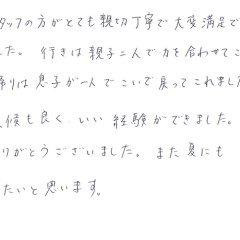 タッフの方がとても親切丁寧で大変満足で
した。行きは親子二人で力を合わせてこ
帰りは息子が一人でこいで戻ってこれました
候も良く、いい経験ができました。
りがとうございました。また夏にも
たいと思います。